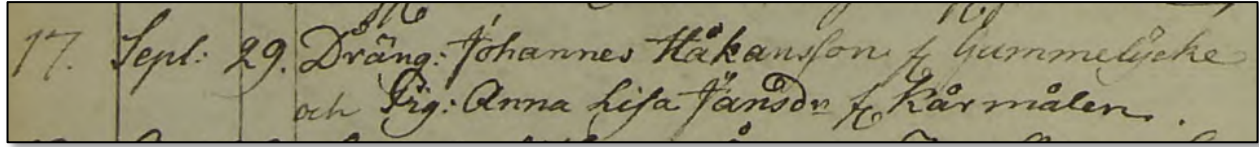 17. Sept: 29. Dräng: Johannes Håkansson f Gummelycke
och Pig: Anna Lisa Jänsdr f Kårmålen.